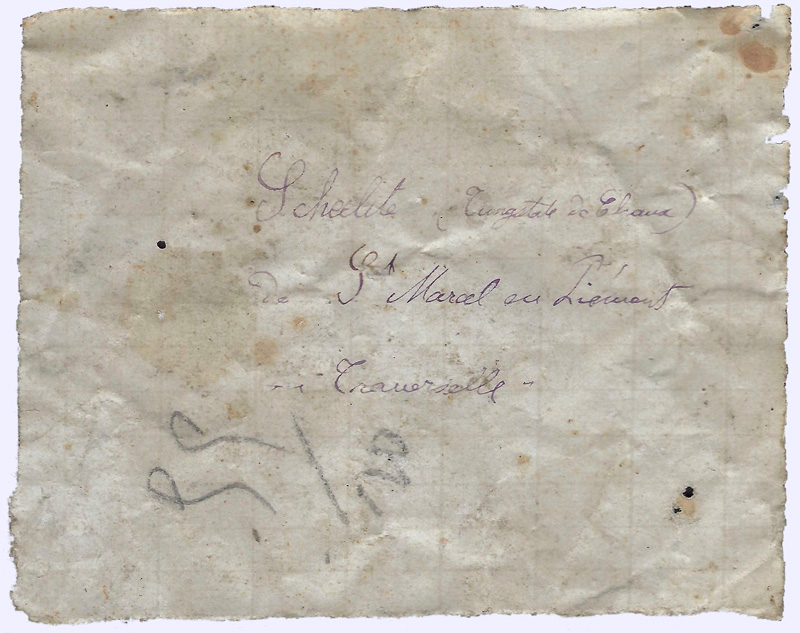 Schoelite (Tungstate de Chaux)
de St Marcel en Piémont
Traverselle -